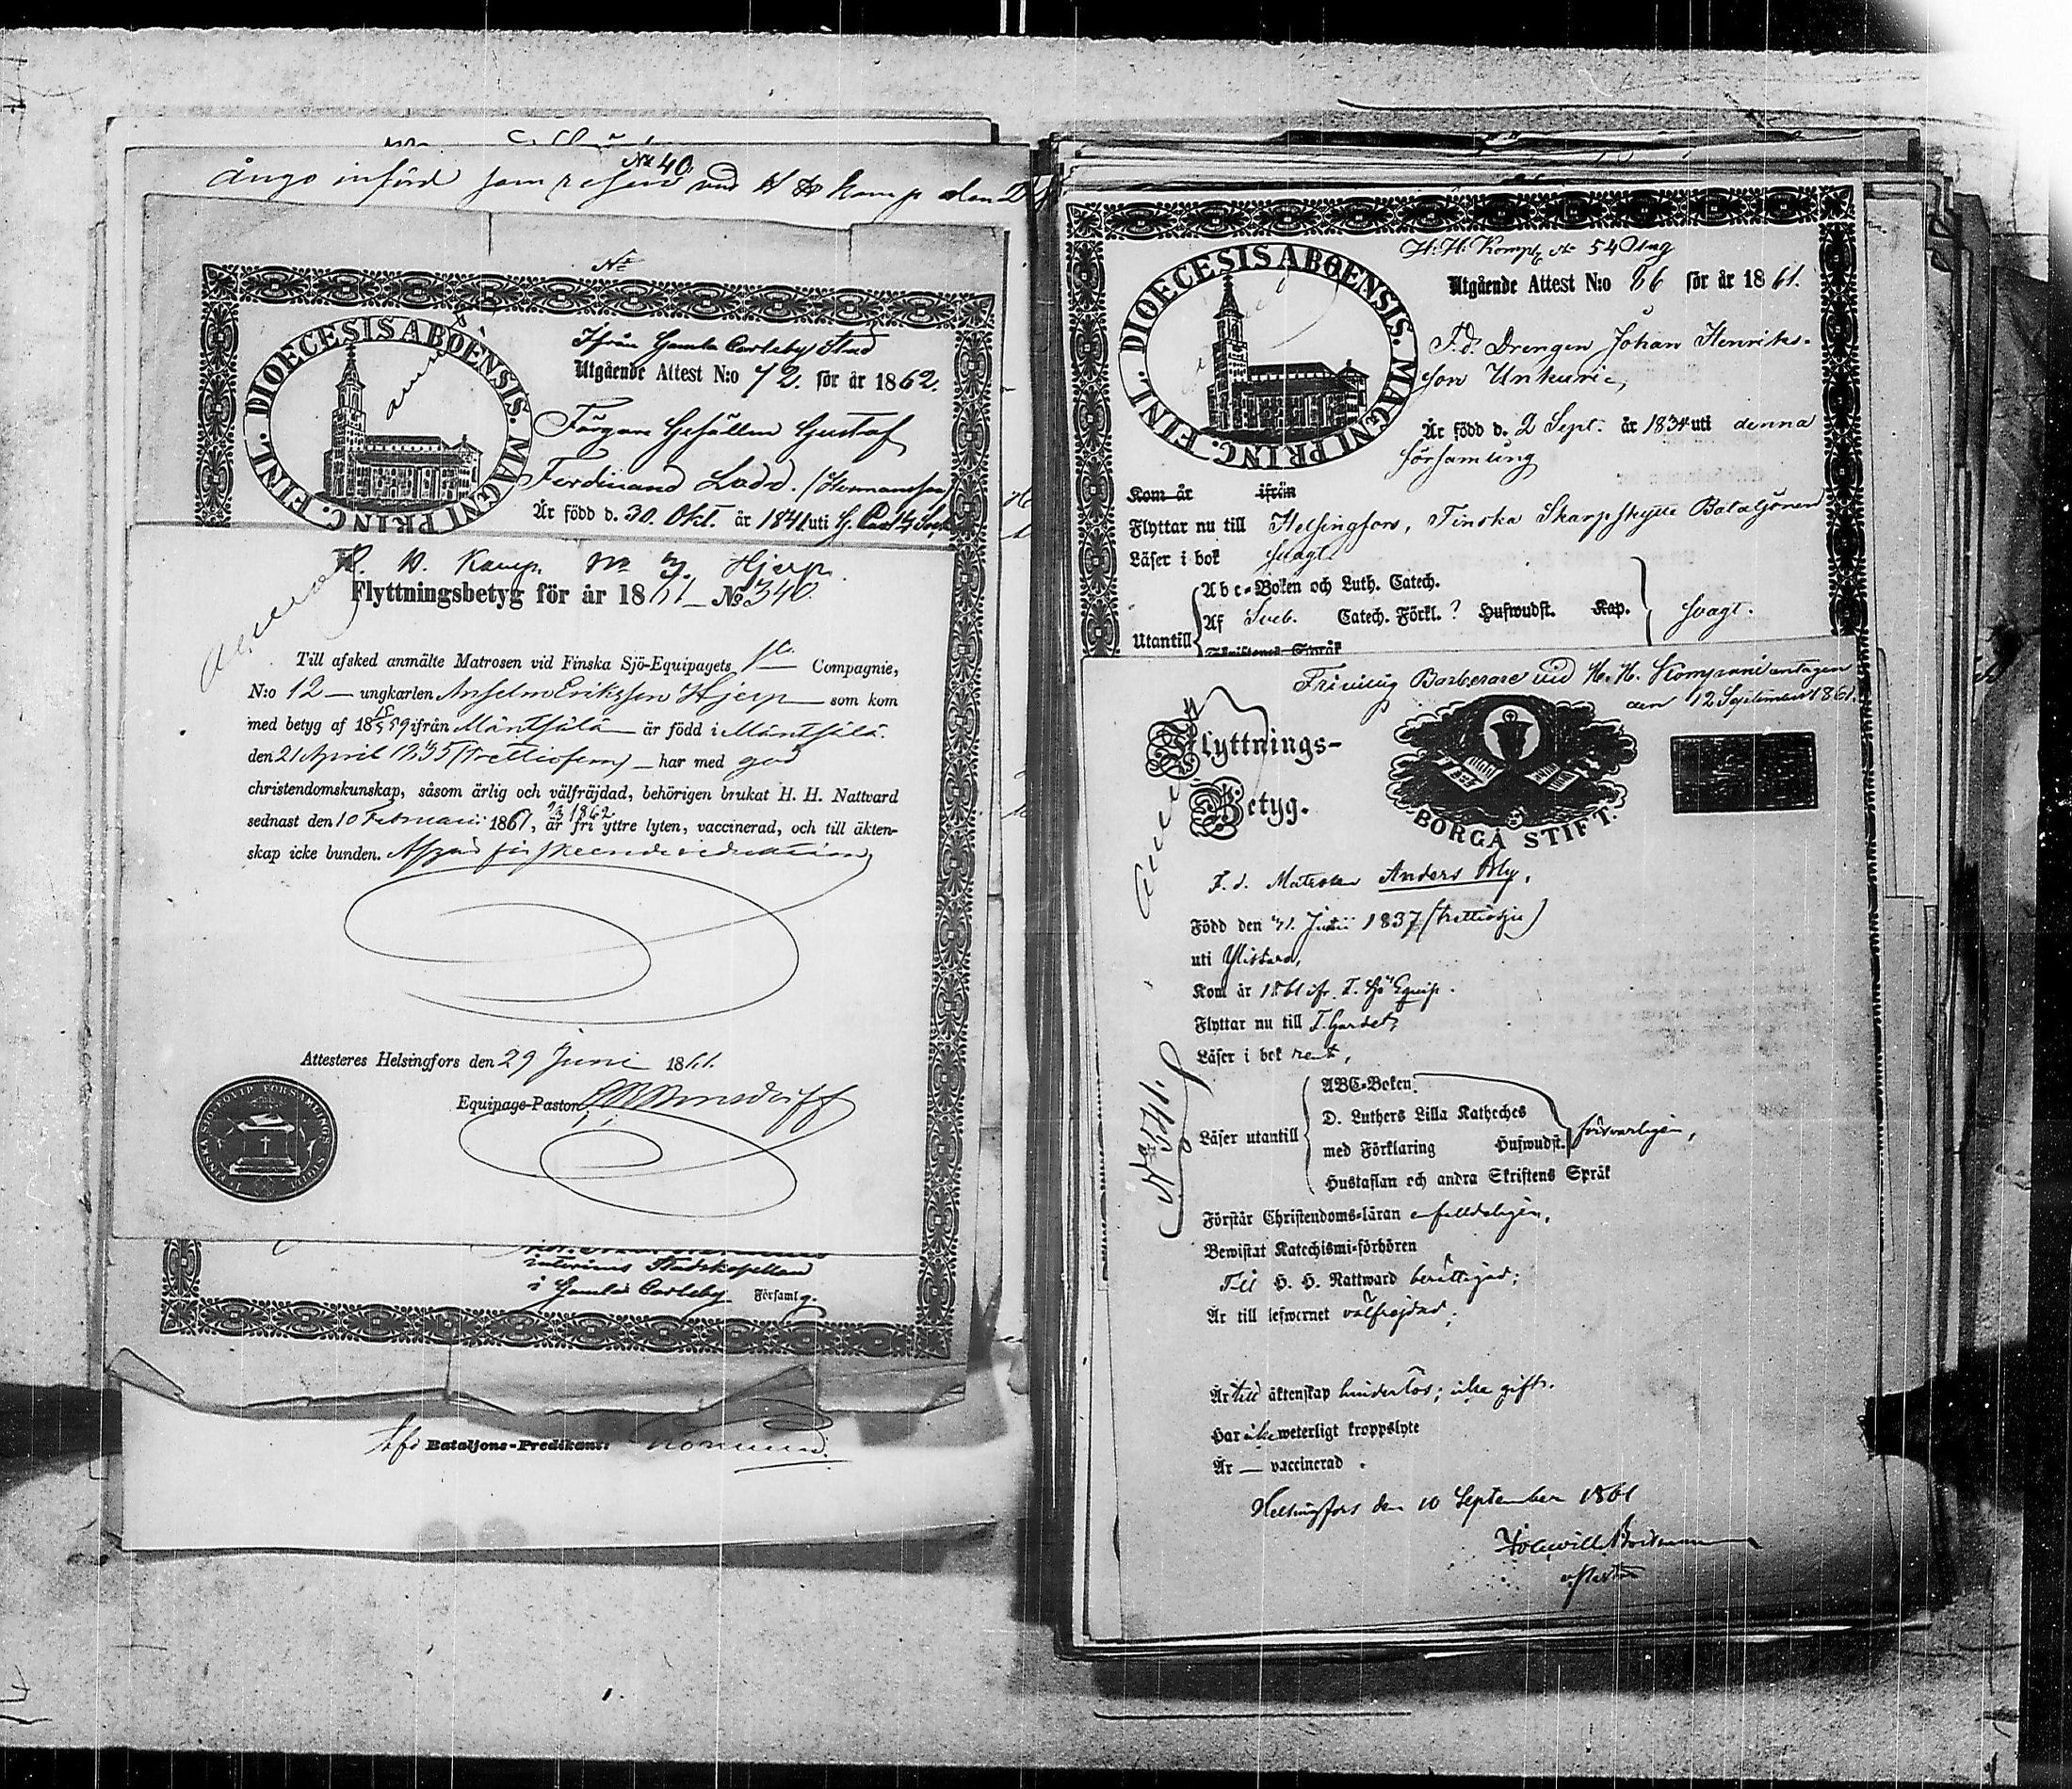 No 40.
införd som ... vid H H Komp den 2
No
Ifrån Gamla Carleby Stad
Utgående Attest N:o 72. för år 1862.
DIOECESIS ABOENSIS. MAGNI PRINC. FINL.
Färgare Gesällen Gustaf
Ferdinand Ladd. (Hermansson)
Är född d. 30. Okt. år 1841 uti G. Carl
Komp. No 3. Hjerp
Flyttningsbetyg för år 1861 No 340.
Till afsked anmälte Matrosen vid Finska Sjö-Equipagets 1sta Compagnie,
N:o 12 — ungkarlen Anselm Eriksson Hjerp — som kom
med betyg af 18 59 ifrån Mäntsälä — är född i Mäntsälä
den 21 April 1835 (trettiofem) — har med god
christendomskunskap, såsom ärlig och välfräjdad, behörigen brukat H. H. Nattvard
sednast den 10 Februari 1861, är fri yttre lyten, vaccinerad, och till äkten-
1862
skap icke bunden. Afgår för skeende reduction
Attesteres Helsingfors den 29 Juni 1861.
Equipage-Pastor
interims Stadskapellan
i Gamla Carleby Församlg.
Bataljons-Predikant:
H. H. Komp No 54 Ung
Utgående Attest N:o 86 för år 1861.
DIOECESIS ABOENSIS. MAGNI PRINC. FINL.
F.d. Drengen Johan Henriks-
son Unkuri,
Är född d. 2 Sept. år 1834 uti denna
församling
Kom år ifrån
Flyttar nu till Helsingfors, Finska Skarpskytte Bataljonen
Läser i bok svagt
Abc-Boken och Luth. Catech.
Utantill Af Sveb. Catech. Förkl.? Hustwudst. Kap. svagt.
Skriftenes Språk
Frivillig Barberare vid H. H. Kompani antagen
den 12 September 1861.
Flyttnings-
Betyg.
BORGÅ STIFT.
F. d. Matrosen Anders Bly,
Född den 21. Junii 1837 (trettiosju)
uti Ylistaro,
Kom år 1861 ifr. F. Sjö Equip.
Flyttar nu till F. Gardet,
Läser i bok rent,
ABC-Boken.
D. Luthers Lilla Katheches
Läser utantill med Förklaring Huswudst. försvarligen,
Hustaflan och andra Skriftens Språk
No 541.
Förstår Christendoms-läran enfaldeligen,
Bewistat Katechismi-förhören
Till H. H. Nattward berättigad;
Är till lefwernet välfrejdad;
Är till äktenskap hinderlös; icke gift.
Har icke weterligt kroppslyte
Är — vaccinerad.
Helsingfors den 10 September 1861